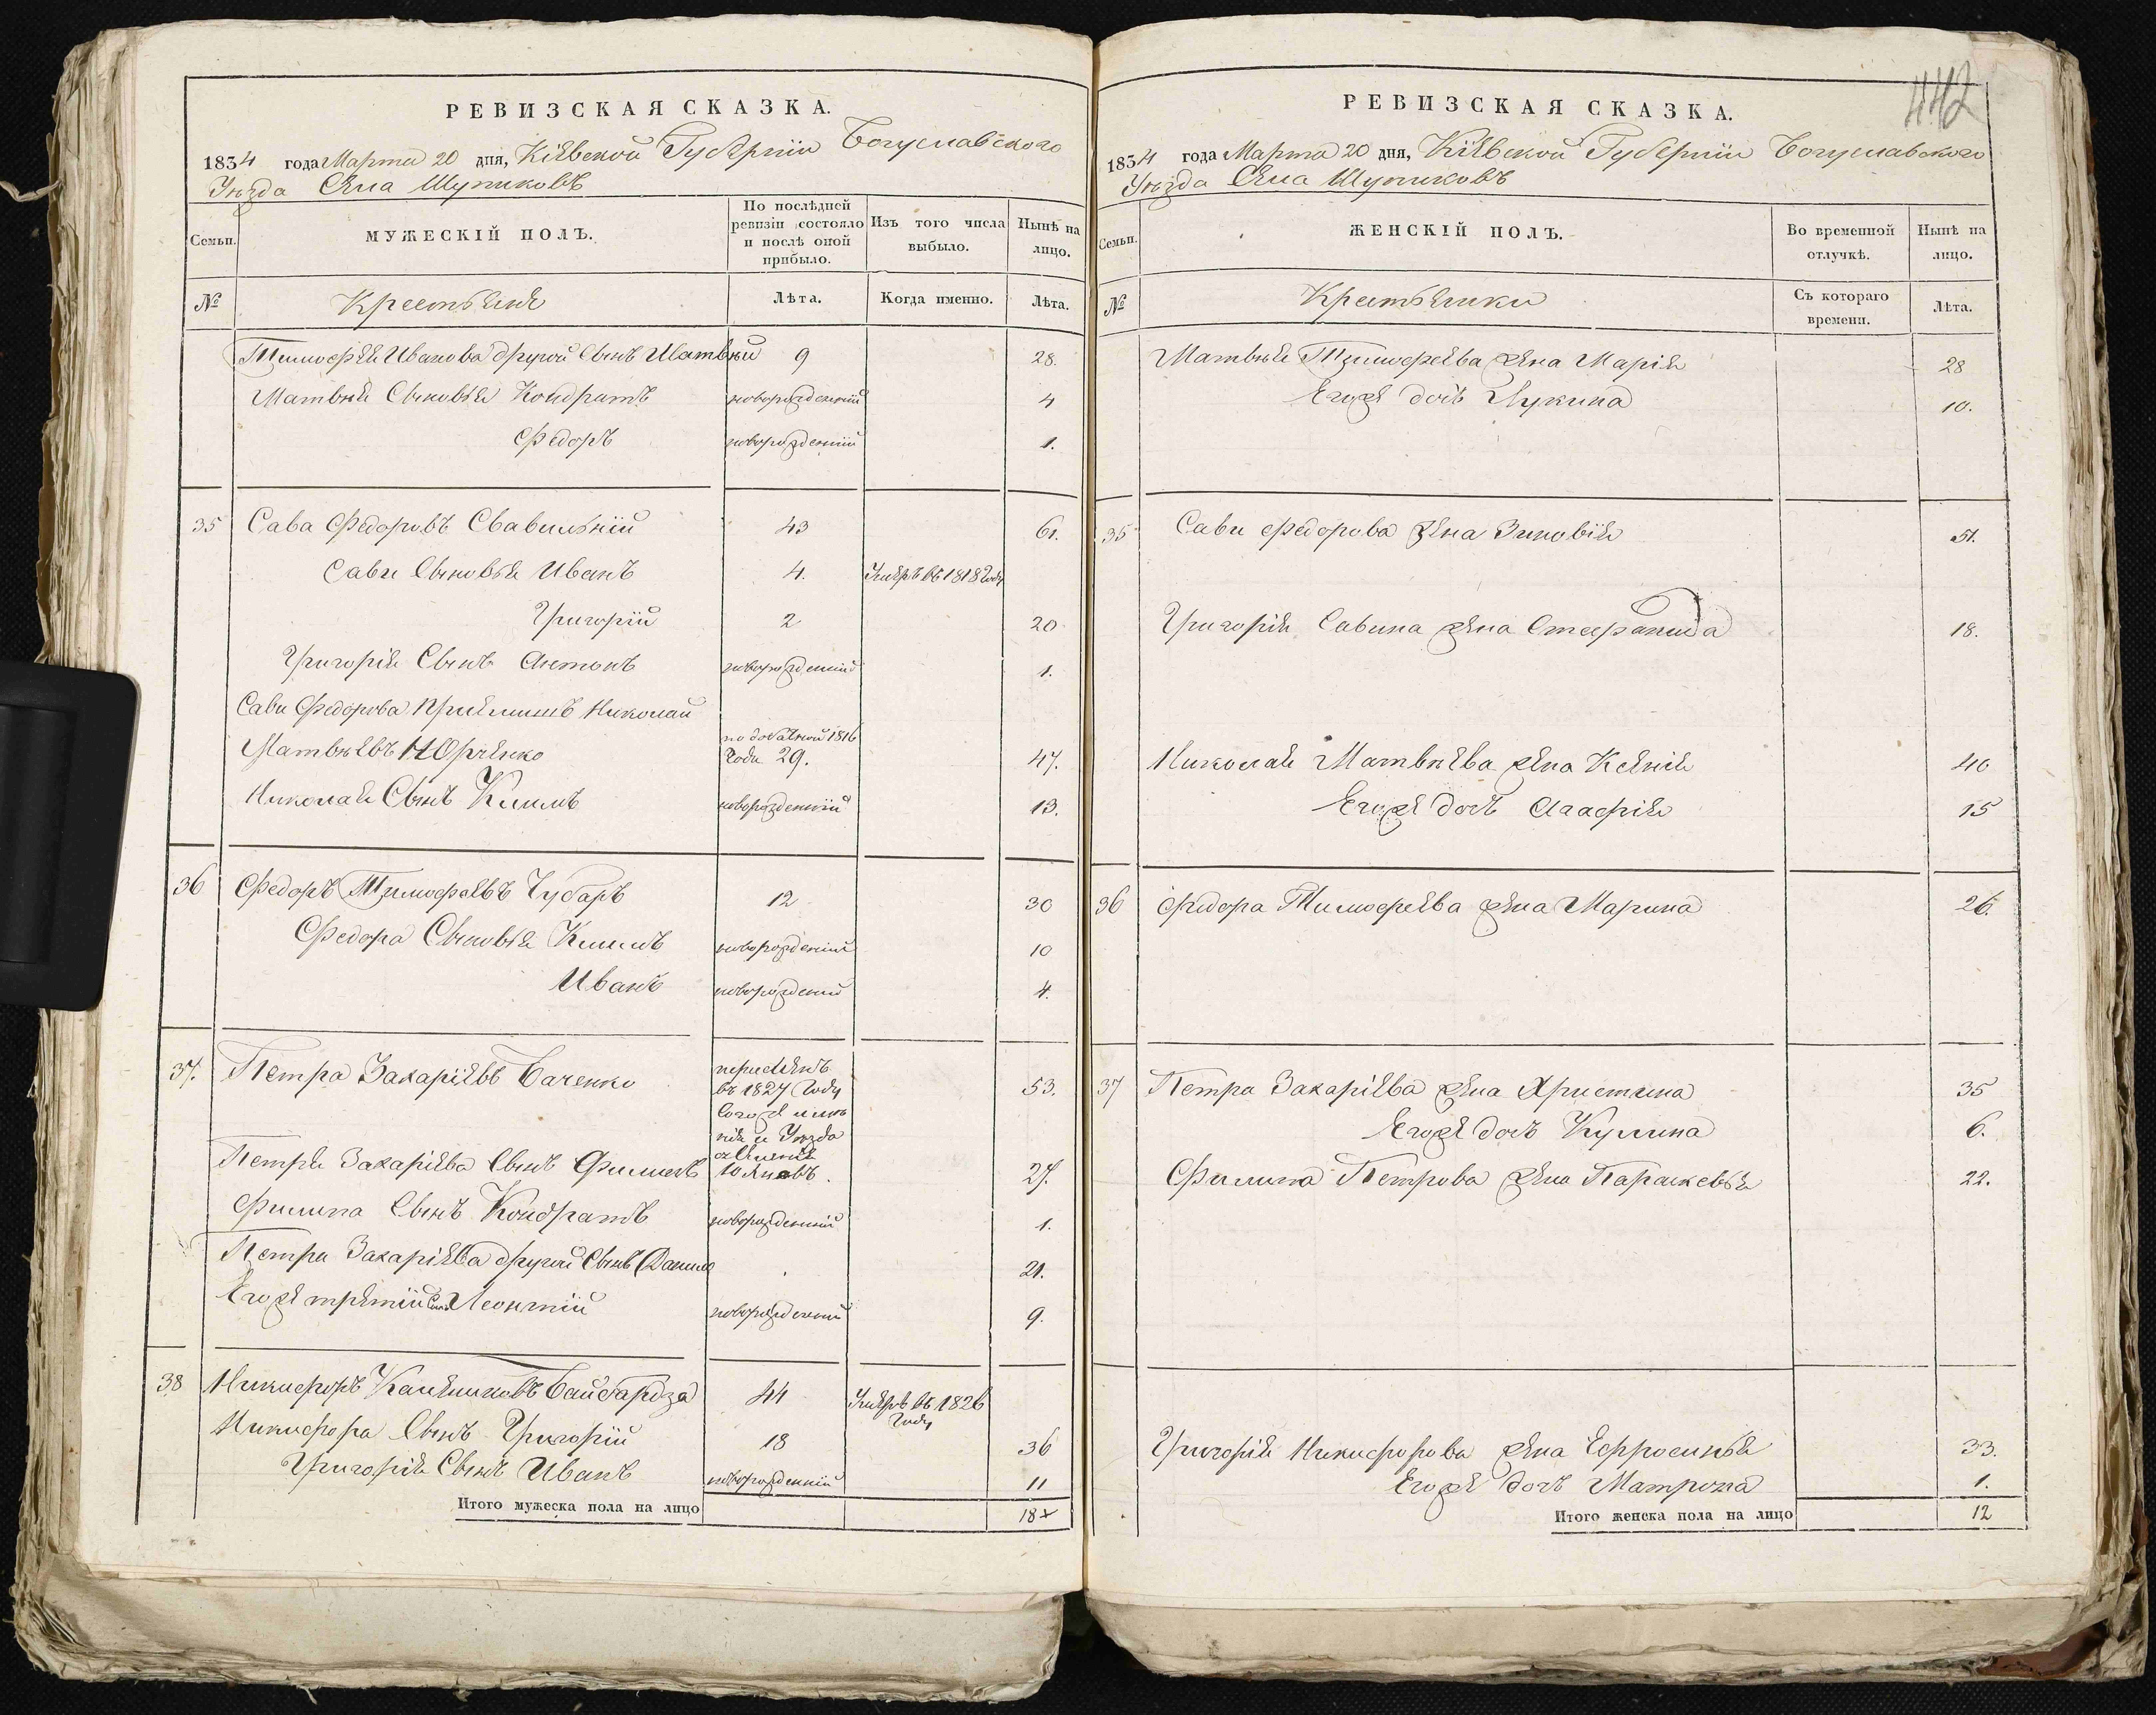 РЕВИЗСКАЯ СКАЗКА.
1834 года Марта 20 дня, Кіевской Губерніи Богуславского
Уѣзда Села Шупиковъ
Семьи. МУЖЕСКІЙ ПОЛЪ. По послѣдней ревизіи состояло и послѣ оной прибыло. Изъ того числа выбыло. Нынѣ на лицо.
№ Крестьяне Лѣта. Когда именно. Лѣта.
Тимофея Иванова другой Сынъ Матвѣй 9 28.
Матвѣя Сыновья Кондратъ новорожденній 4
Федоръ новорожденній 1.
35 Сава Федоровъ Свавильній 43 61.
Савы Сыновья Иванъ 4. Умеръ въ 1818 Году
Григорій 2 20
Григорія Сынъ Антонъ новорожденній 1.
Савы Федорова Приемишъ Николай
Матвѣевъ Юрченко по добавной 1816 Года 29. 47.
Николая Сынъ Климъ новорожденній 13.
36 Федоръ Тимофеевъ Чубаръ 12 30
Федора Сыновья Климъ новорожденній 10
Иванъ новорожденій 4.
37. Петра Захаріевъ Баченко переселенъ 53.
въ 1827 Году
тогожъ имѣ
нія и Уѣзда
Петра Захаріева Сынъ Филипъ 27.
Филипа Сынъ Кондратъ новорожденній 1.
Петра Захаріева другой Сынъ Данило 21.
Егоже третій Сынъ Леонтій новорожденій 9.
38 Никифоръ Байбардза 44 Умеръ въ 1826 Году
Никифора Сынъ Григорій 18 36
Григорія Сынъ Иванъ новорожденній 11
Итого мужеска пола на лицо 18
442
РЕВИЗСКАЯ СКАЗКА.
1834 года Марта 20 дня, Кіевской Губерніи Богуславского
Уѣзда Села Шупиковъ
Семьи. ЖЕНСКІЙ ПОЛЪ. Во временной отлучкѣ. Нынѣ на лицо.
№ Крестьянки Съ котораго времени. Лѣта.
Матвѣя Тимофеева жена Марія 28
Егоже дочь Лукина 10.
35 Савы Федорова жена Зиновія 51.
Григорія Савина жена Стефанида 18.
Николая Матвѣева жена Ксенія 40
Егоже дочь Агафія 15
36 Федора Тимофеева жена Марина 26.
37 Петра Захаріева жена Христина 35
Егоже дочь Кулина 6.
Филипа Петрова жена Параскевья 22.
Григорія Никифорова жена Ефросинья 33.
Егоже дочь Матрона 1.
Итого женска пола на лицо 12